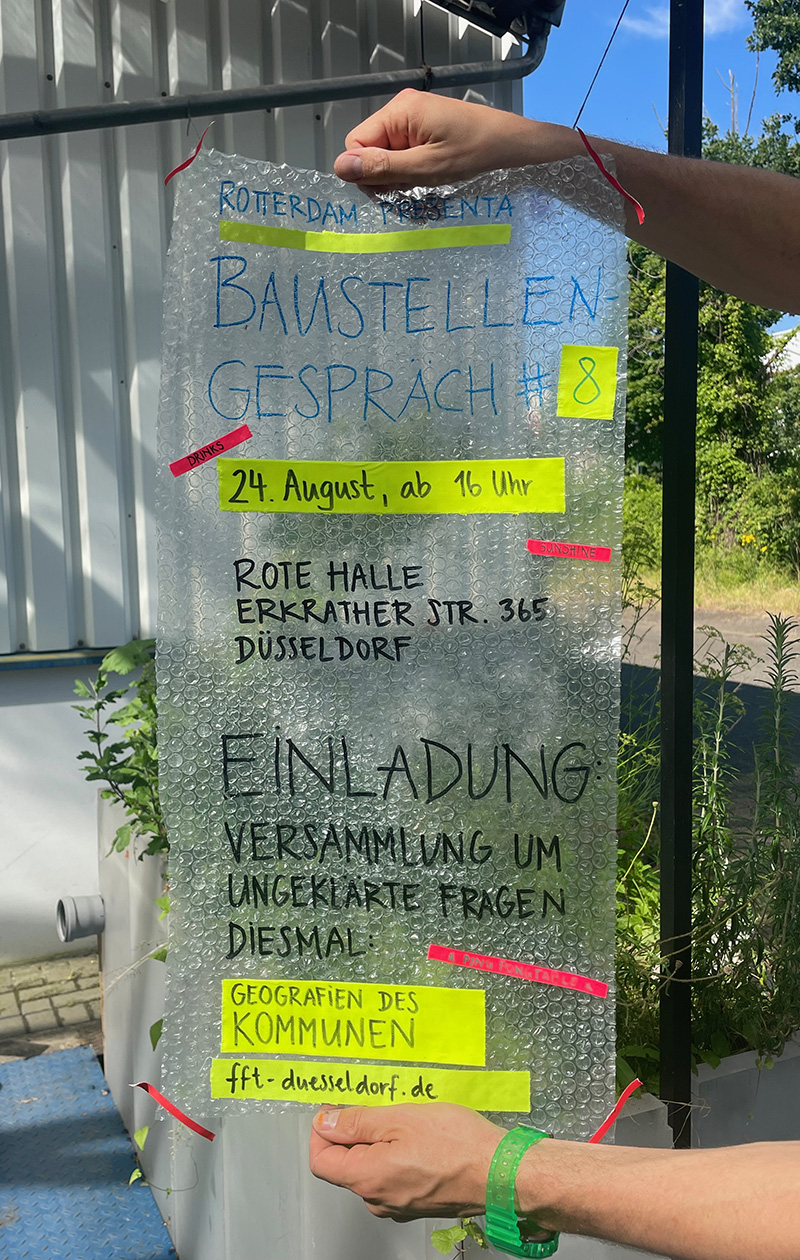 ROTTERDAM PRESENTA
BAUSTELLEN-
GESPRÄCH # 8
DRINKS
24. August, ab 16 Uhr
SUNSHINE
ROTE HALLE
ERKRATHER STR. 365
DÜSSELDORF
EINLADUNG:
VERSAMMLUNG UM
UNGEKLÄRTE FRAGEN
DIESMAL:
& PING PONG TABLE &
GEOGRAFIEN DES
KOMMUNEN
fft-duesseldorf.de